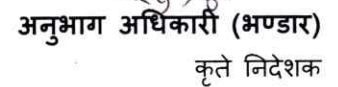 अनुभाग अधिकारी (भण्डार)
कृते निदेशक